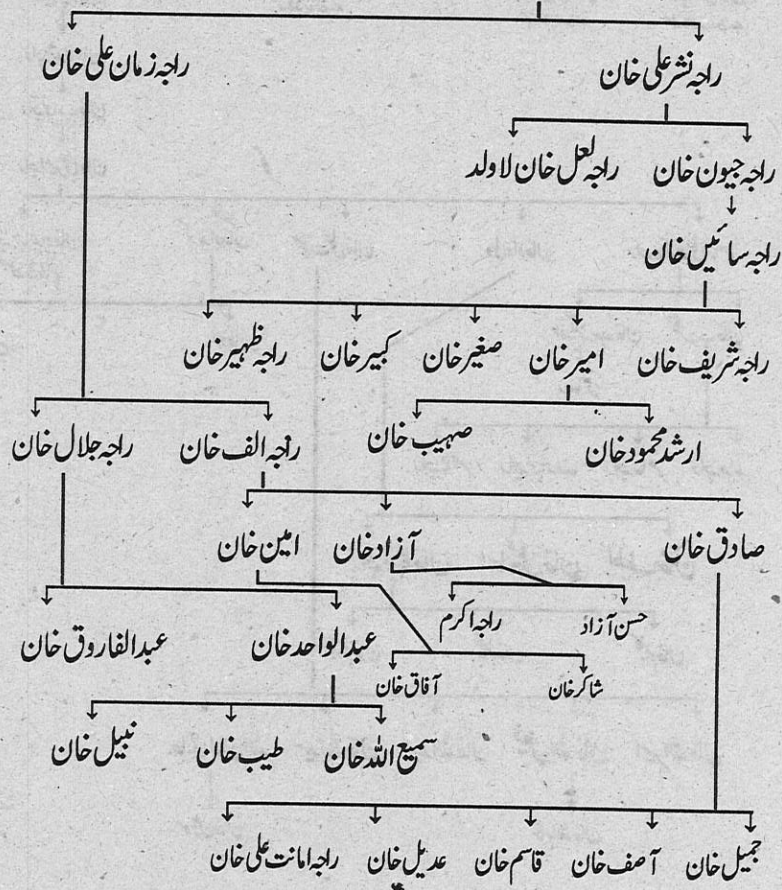 راجہ نشر علی خان راجہ زمان علی خان
راجہ جیون خان راجہ لعل خان لاولد
راجہ سائیں خان
راجہ شریف خان امیر خان صغیر خان کبیر خان راجہ ظہیر خان
ارشد محمود خان صہیب خان راجہ الف خان راجہ جلال خان
صادق خان آزاد خان امین خان
حسن آزاد راجہ اکرم عبدالواحد خان عبدالفاروق خان
شاکر خان آفاق خان
سمیع اللہ خان طیب خان نبیل خان
جمیل خان آصف خان قاسم خان عدیل خان راجہ امانت علی خان